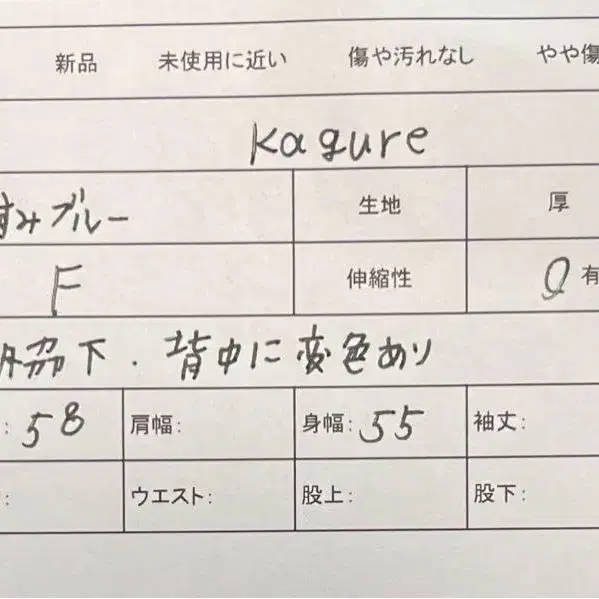 新品 未使用に近い 傷や汚れなし やや傷
Kagure
みブルー 生地 厚
F 伸縮性 有
脇下.背中に変色あり
: 58 肩幅: 身幅: 55 袖丈:
: ウエスト: 股上: 股下: